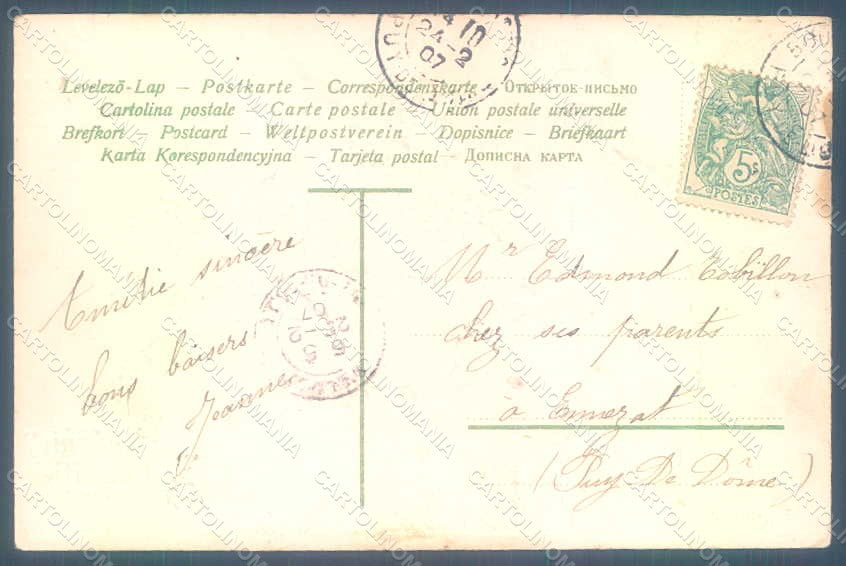 24-2
07
Levelező-Lap – Postkarte – Correspondenzkarte – Открытое-письмо
Cartolina postale – Carte postale – Union postale universelle
Brefkort – Postcard – Weltpostverein – Dopisnice – Briefkaart
Karta Korespondencyjna – Tarjeta postal – Дописна карта
5c
POSTES
Amitié sincère
bons baisers
Jeanne
Mr Edmond Cobillon
chez ses parents
à Ennezat
(Puy De Dôme)
CARTOLINOMANIA